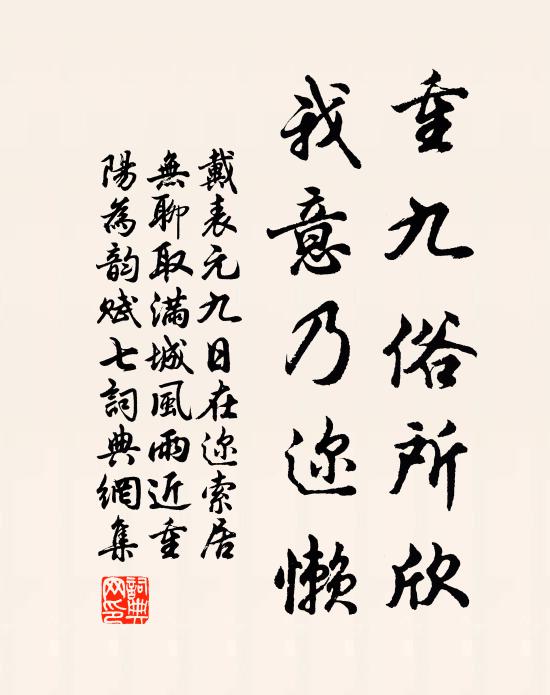 重九俗所欣
我意乃迩懒
戴表元九日在迩索居
無聊取滿城風雨近重
陽為韵赋七詞典網集
詞典
网印